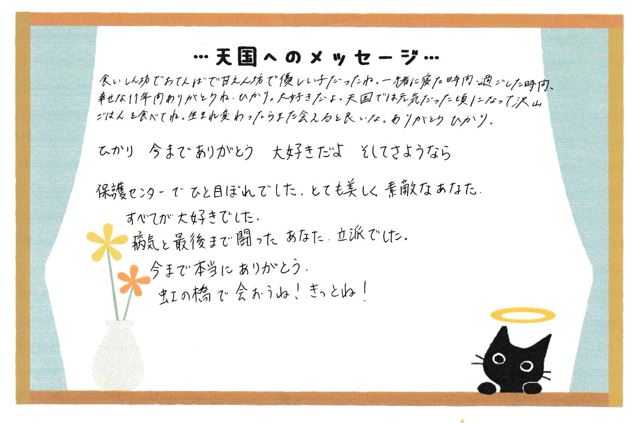 …天国へのメッセージ…
食いしん坊でおてんばで甘えん坊で優しい子だったね。一緒に寝た時間、過ごした時間、
幸せな11年間ありがとうね、ひかり。大好きだよ。天国では元気だった頃になって沢山
ごはんを食べてね。生まれ変わったらまた会えると良いな。ありがとうひかり。
ひかり 今までありがとう 大好きだよ そしてさようなら
保護センターでひと目ぼれでした。とても美しく素敵なあなた。
すべてが大好きでした。
病気と最後まで闘ったあなた、立派でした。
今まで本当にありがとう。
虹の橋で会おうね！きっとね！